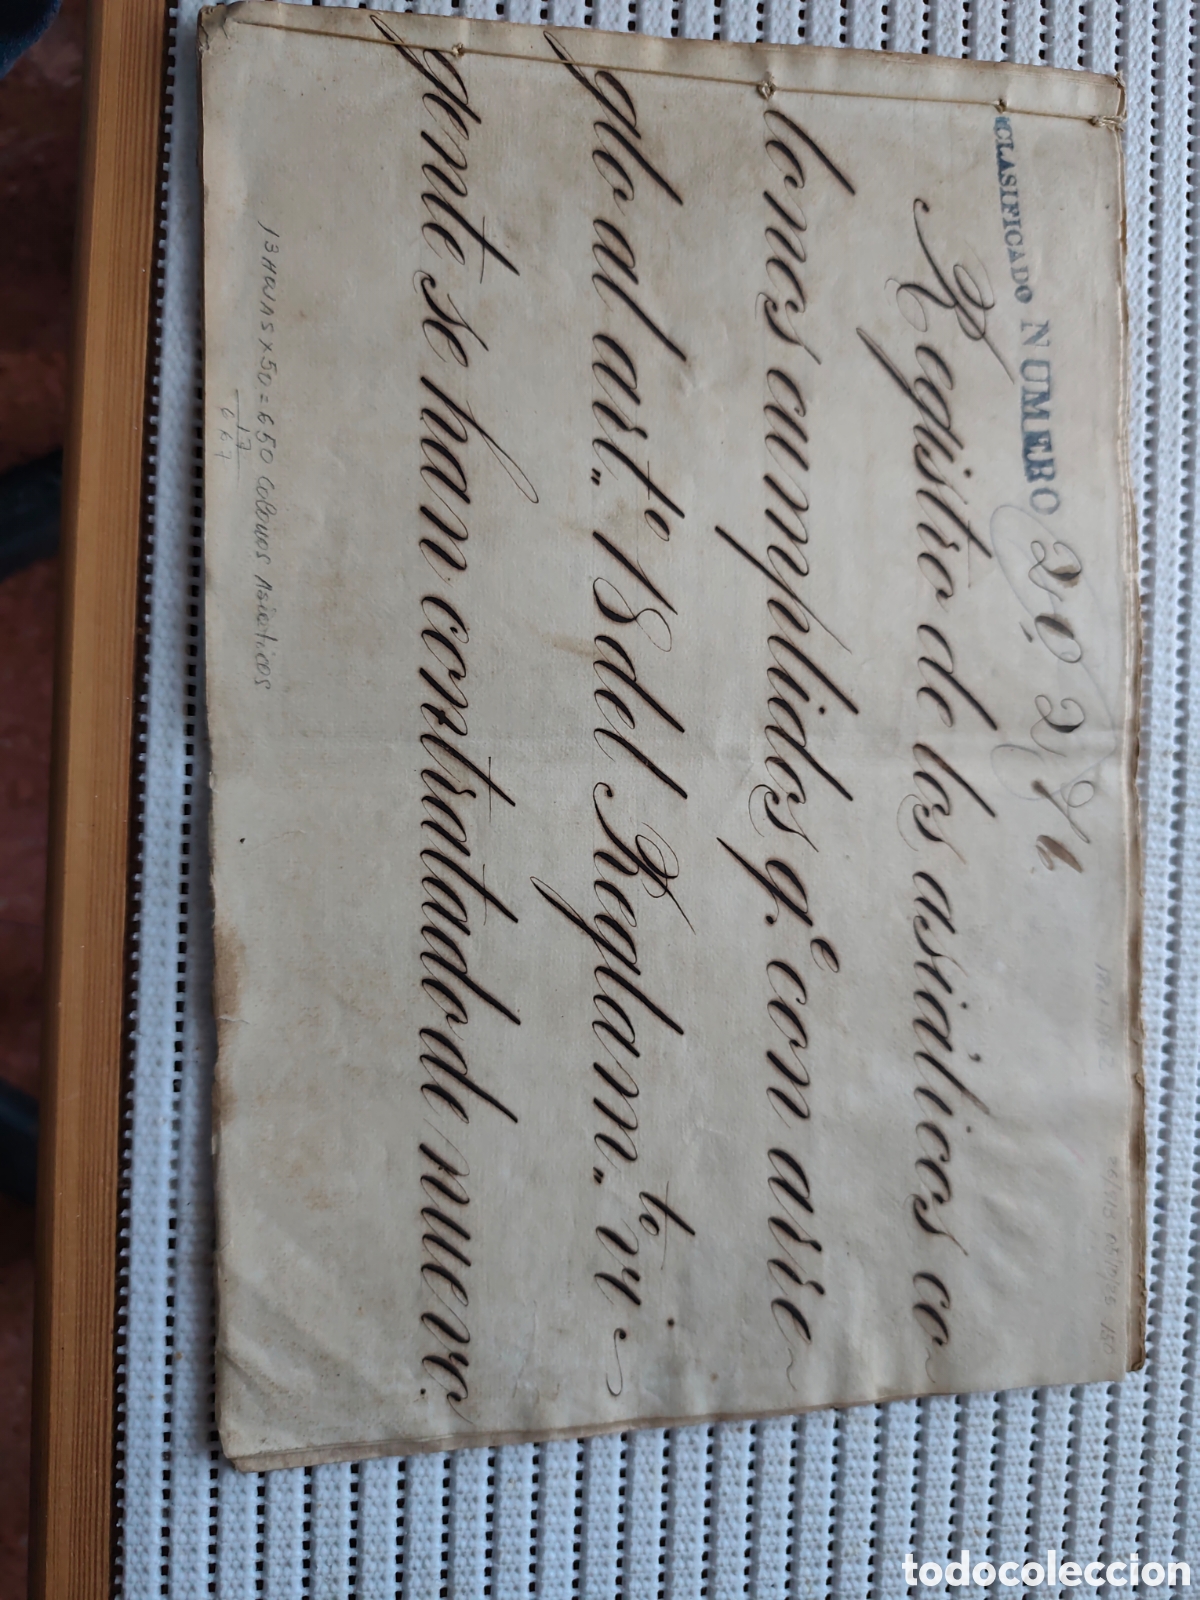 CLASIFICADO NUMERO
Registro de los asiáticos co
lonos cumplidos q.e con arre
glo al art.to 18 del Reglam.to vi
gente se han contratado de nuevo.
13 x 50 = 650 colonos asiáticos
17
667
todocoleccion